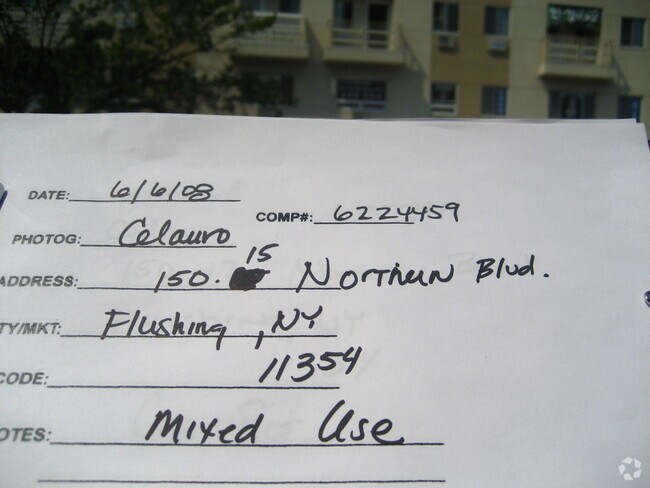 DATE: 6/6/08
COMP#: 6224459
PHOTOG: Celauro
ADDRESS: 150-15 Northern Blvd.
TY/MKT: Flushing, NY
CODE: 11354
OTES: Mixed Use